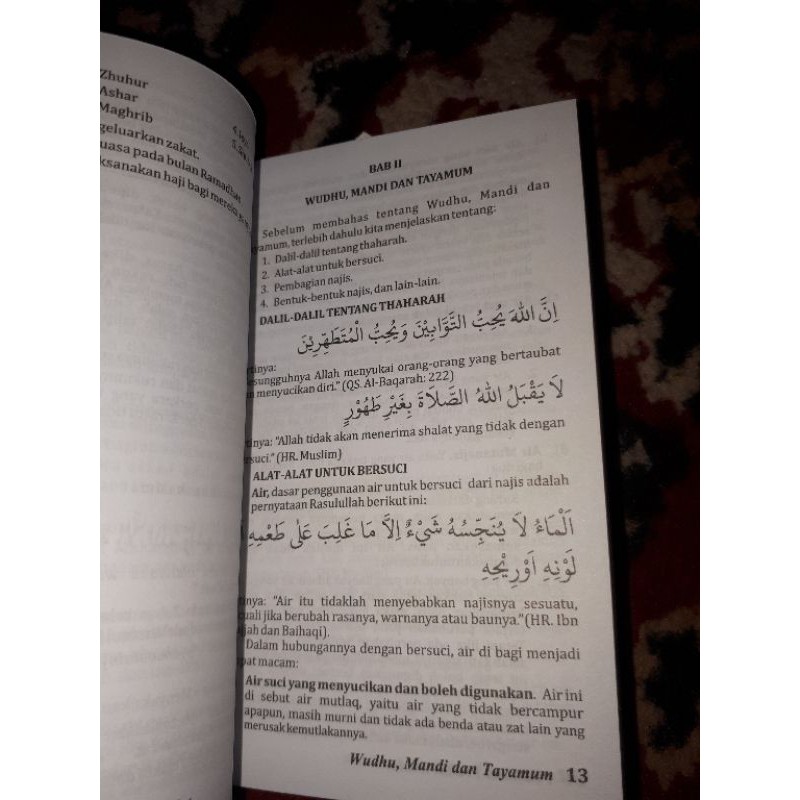 Zhuhur
Ashar
Maghrib
geluarkan zakat.
uasa pada bulan Ramadhat
ksanakan haji bagi mereka
BAB II
WUDHU, MANDI DAN TAYAMUM
Sebelum membahas tentang Wudhu, Mandi dan
yamum, terlebih dahulu kita menjelaskan tentang:
1. Dalil-dalil tentang thaharah.
2. Alat-alat untuk bersuci.
3. Pembagian najis.
4. Bentuk-bentuk najis, dan lain-lain.
DALIL-DALIL TENTANG THAHARAH
اِنَّ اللهَ يُحِبُّ التَّوَّابِيْنَ وَيُحِبُّ الْمُتَطَهِّرِيْنَ
tinya:
esungguhnya Allah menyukai orang-orang yang bertaubat
n menyucikan diri." (QS. Al-Baqarah: 222)
لَا يَقْبَلُ اللهُ الصَّلَاةَ بِغَيْرِ طَهُوْرٍ
tinya: "Allah tidak akan menerima shalat yang tidak dengan
suci." (HR. Muslim)
ALAT-ALAT UNTUK BERSUCI
Air, dasar penggunaan air untuk bersuci dari najis adalah
pernyataan Rasulullah berikut ini:
اَلْمَاءُ لَا يُنَجِّسُهُ شَيْءٌ اِلَّا مَا غَلِبَ عَلٰى طَعْمِهِ
لَوْنِهِ اَوْرِيْحِهِ
tinya: "Air itu tidaklah menyebabkan najisnya sesuatu,
uali jika berubah rasanya, warnanya atau baunya."(HR. Ibn
jah dan Baihaqi).
Dalam hubungannya dengan bersuci, air di bagi menjadi
pat macam:
Air suci yang menyucikan dan boleh digunakan. Air ini
di sebut air mutlaq, yaitu air yang tidak bercampur
apapun, masih murni dan tidak ada benda atau zat lain yang
merusak kemutlakannya.
Wudhu, Mandi dan Tayamum 13